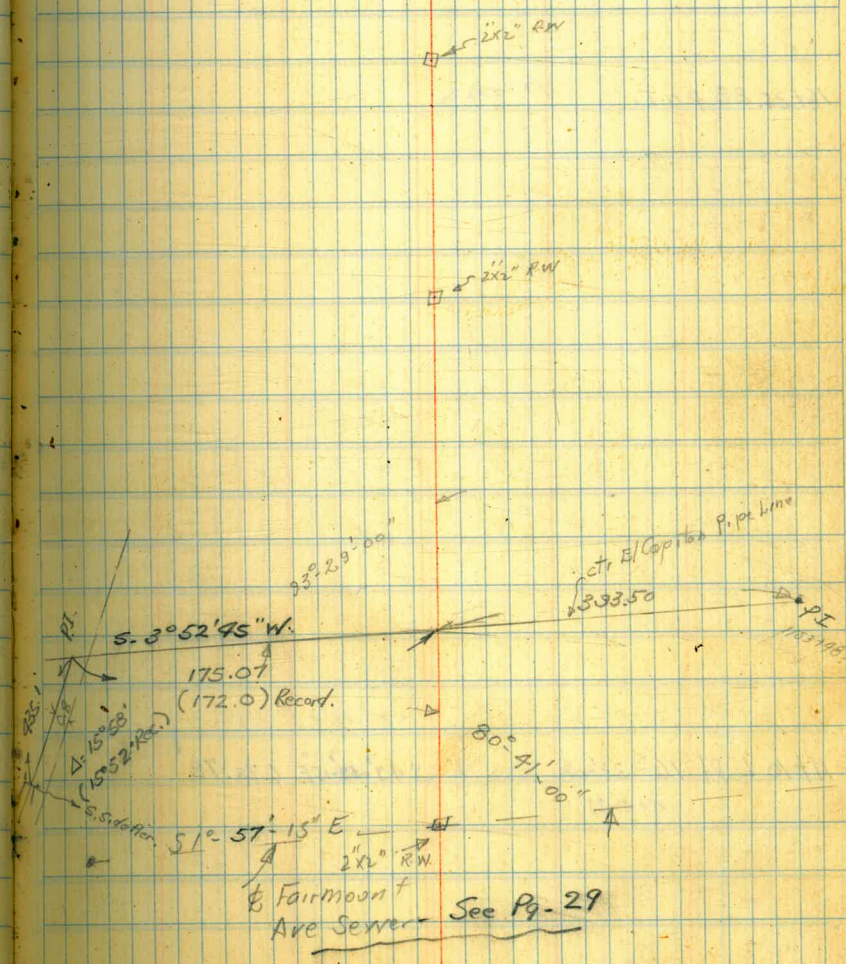 2"x2" R.W
2"x2" R.W
93°-29'-00"
ctr. El Capitan Pipe Line
333.50
P.I.
S- 3°52'45" W.
P.I
175.07
(172.0) Record.
Δ= 15°58'
(15°52' Rec.)
80°-41'-00"
S1°-57'-15" E
2"x2" R.W.
℄ Fairmount
Ave Sewer - See Pg- 29